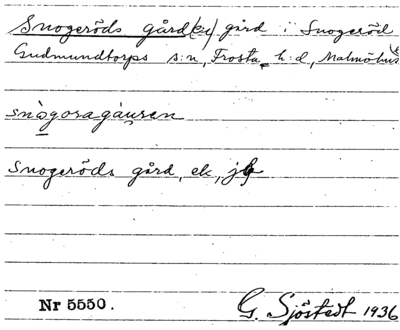 Snogeröds gård(en) gård i Snogeröd
Gudmundtorps s:n, Frosta h:d, Malmöhus
snògoragàu̯ren
Snogeröds gård, ek, jb
Nr 5550. G. Sjöstedt 1936